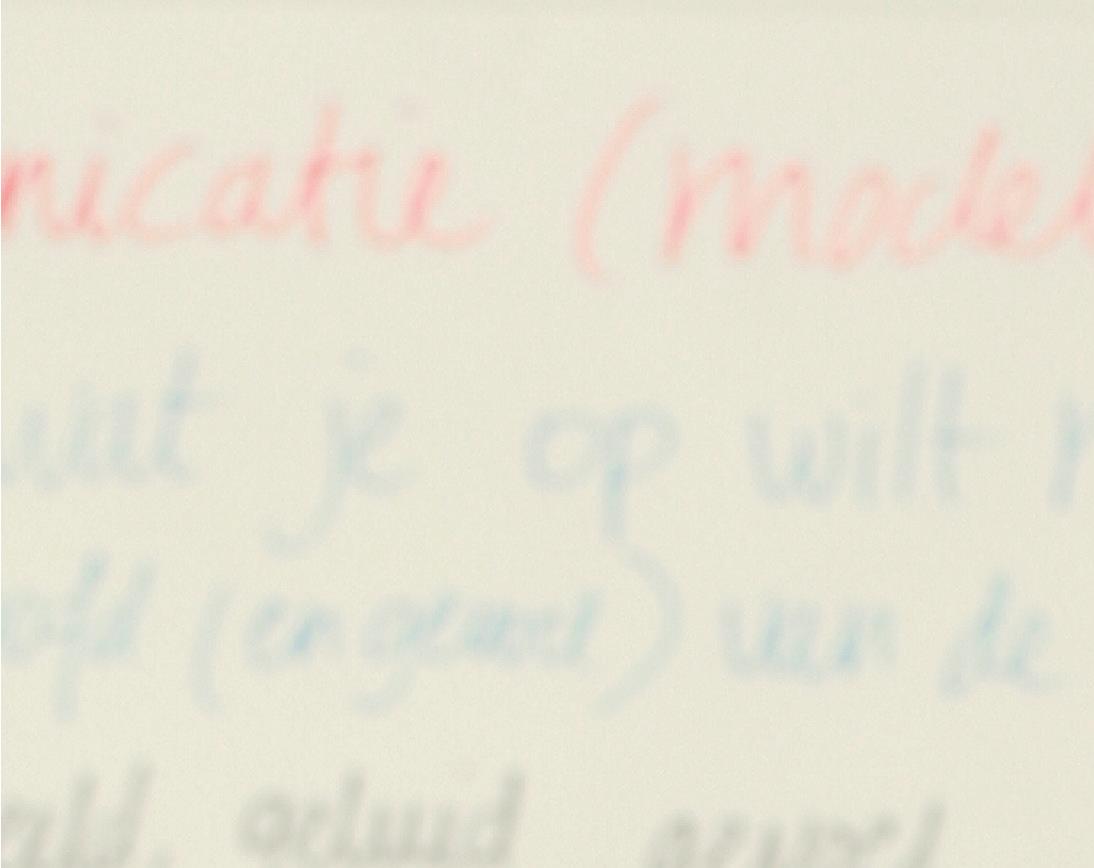 nicatie (model
wat je op wilt
ofd (en gevoel) van de
geluid gevoel